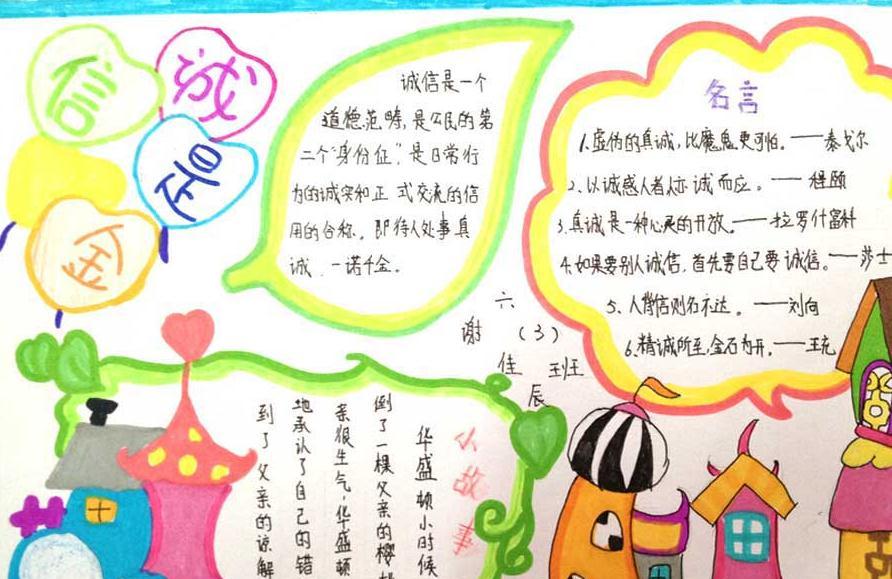 诚信是金
诚信是一个
道德范畴,是公民的第
二个“身份证”,是日常行
为的诚实和正式交流的信
用的合称。即待人处事真
诚、一诺千金。
名言
1.虚伪的真诚,比魔鬼更可怕。——泰戈尔
2.以诚感人者人亦诚而应。——程颐
3.真诚是一种心灵的开放。——拉罗什富科
4.如果要别人诚信,首先要自己要诚信。——莎士
5、人背信则名不达。——刘向
6.精诚所至,金石为开。——王充
六(3)班
谢佳辰
小故事
华盛顿小时候
倒了一棵父亲的樱
亲狠生气,华盛顿
地承认了自己的错
到了父亲的谅解